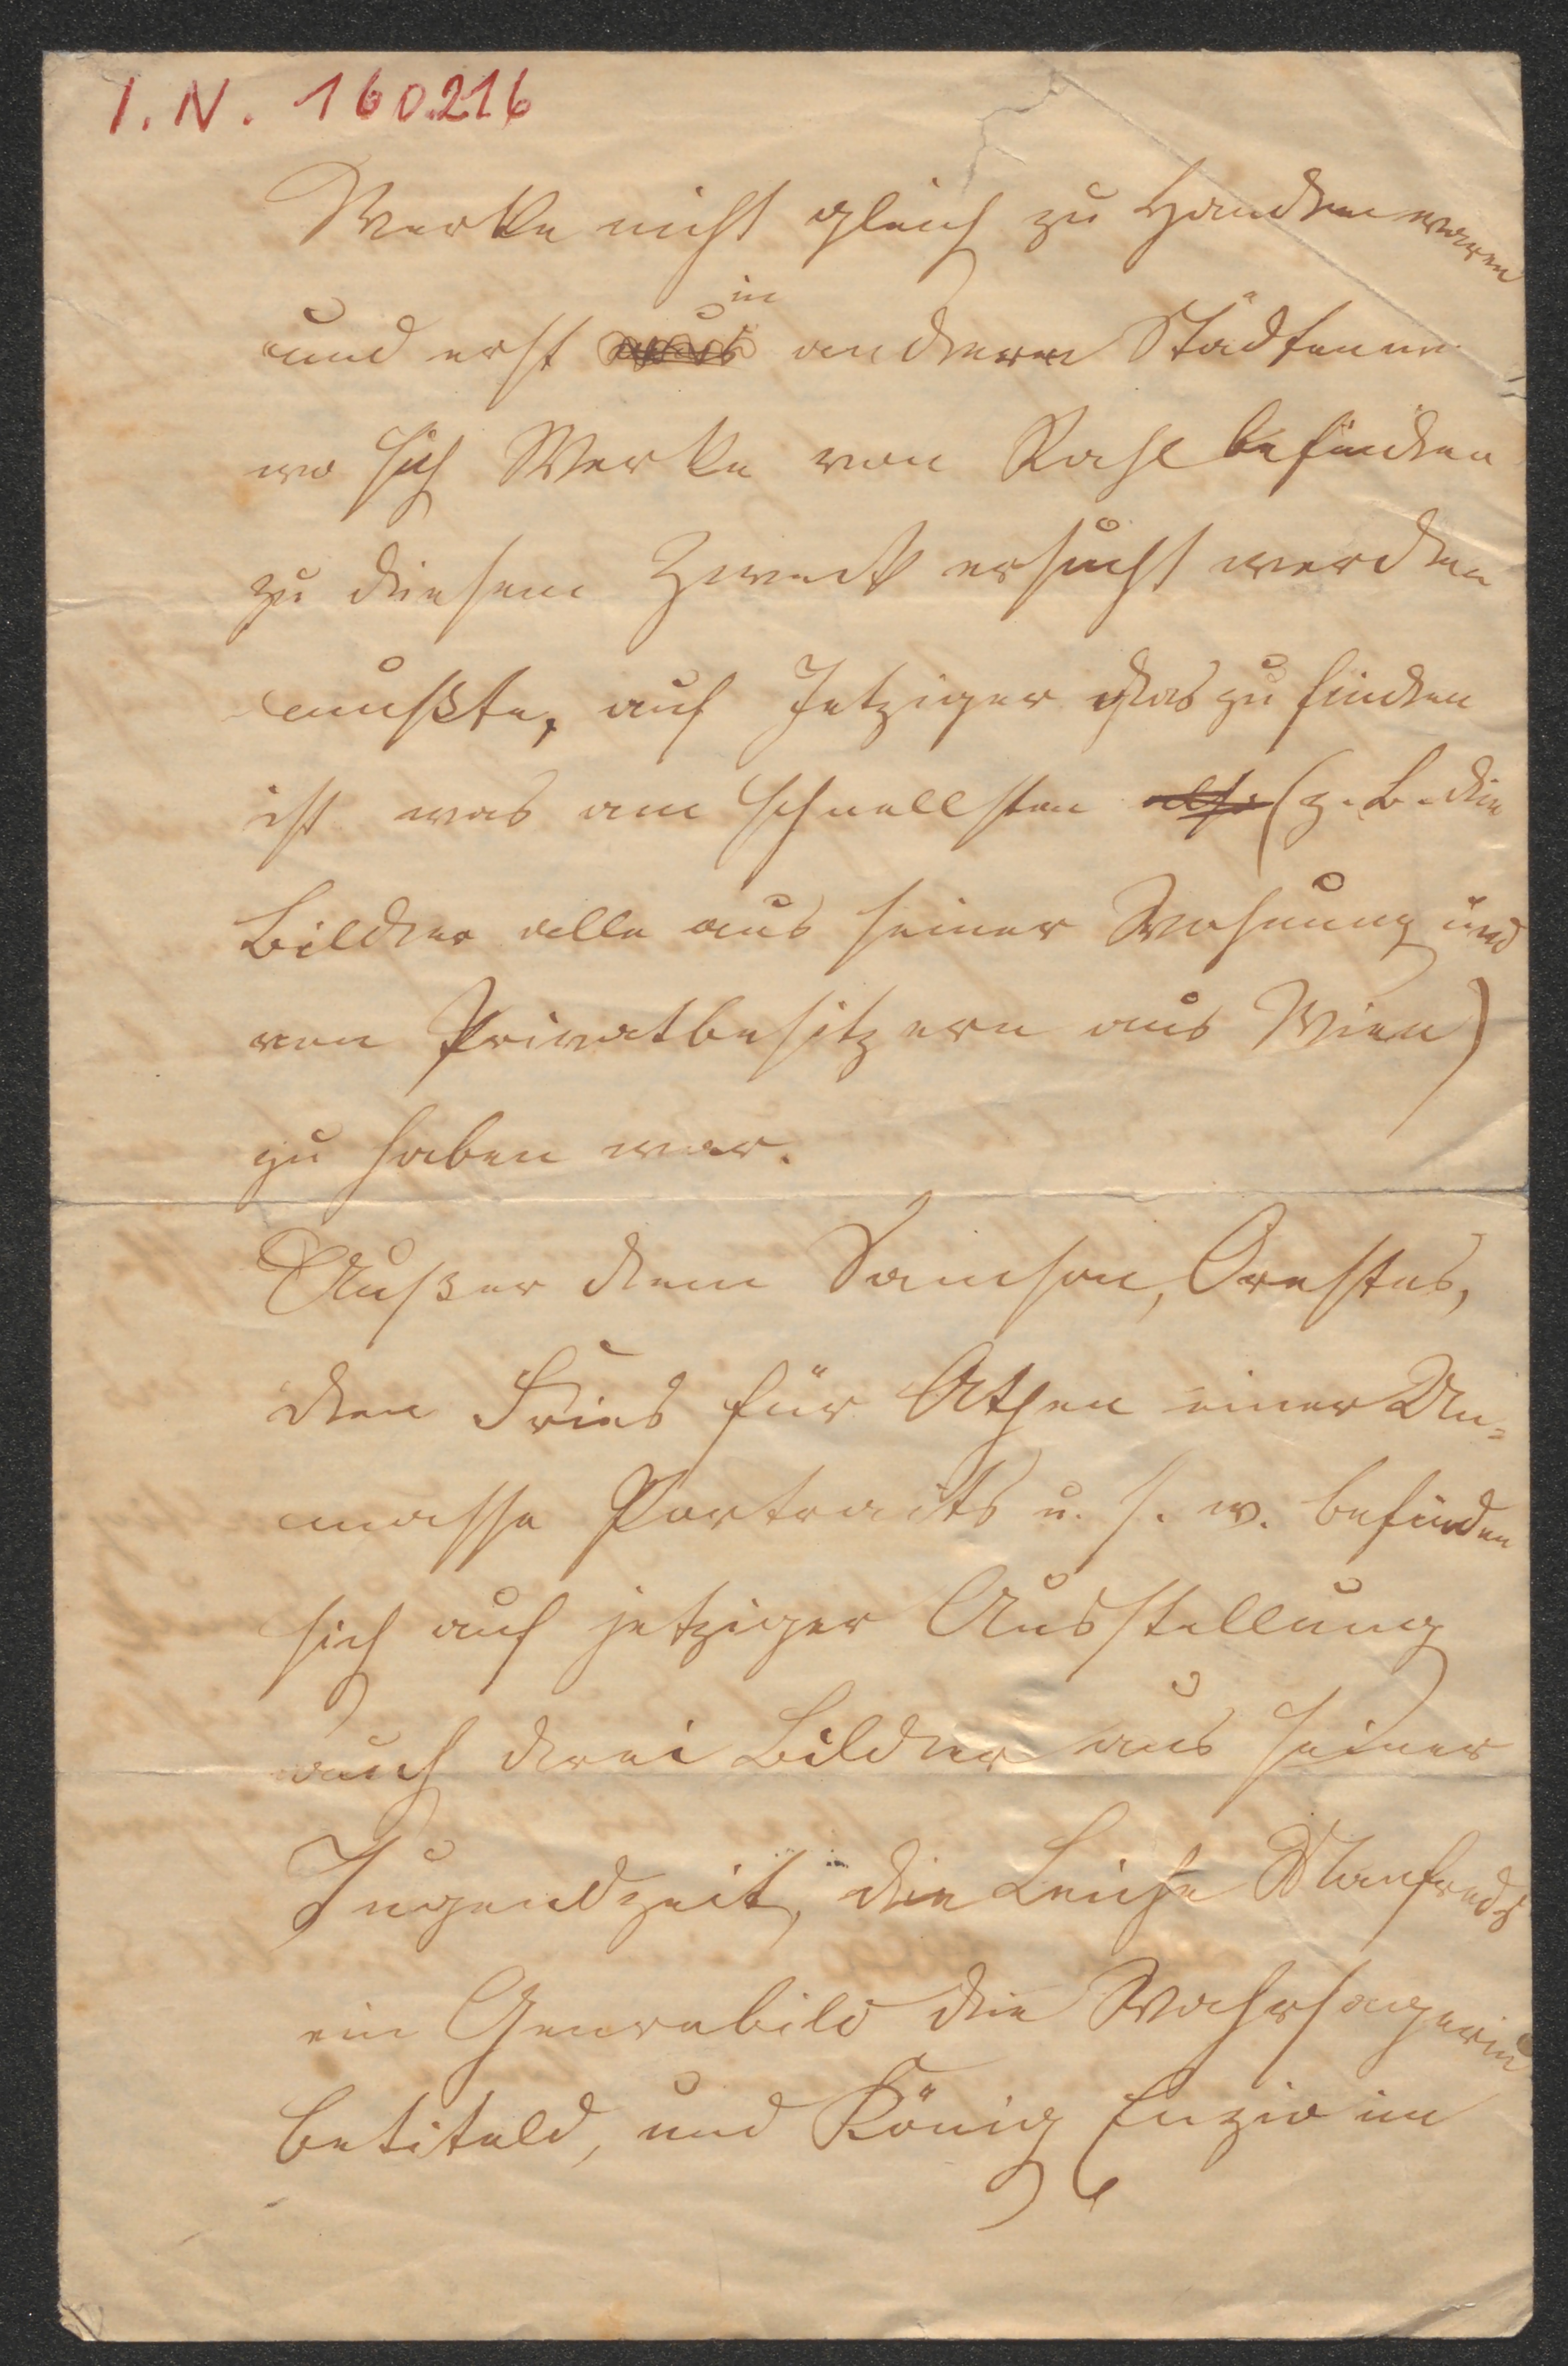 I. N. 160.216
Werke nicht gleich zu Handen waren
in
und erst aus anderen Städten
wo sich Werke von Rahl befinden
zu diesem Zweck ersucht werden
mußte, auf Jetziger das zu finden
ist was am schnellsten (z. B. die
Bilder alle aus seiner Wohnung und
von Privatbesitzern aus Wien)
zu haben war.
Außer dem Samson, Orestes,
den Fries für Athen einer Un-
masse Portraits u. s. w. befinden
sich auf jetziger Ausstellung
auch drei Bilder aus seiner
Jugendzeit, die Leiche Manfreds
ein Genrebild die Wahrsagerin
betiteld, und König Enzio im